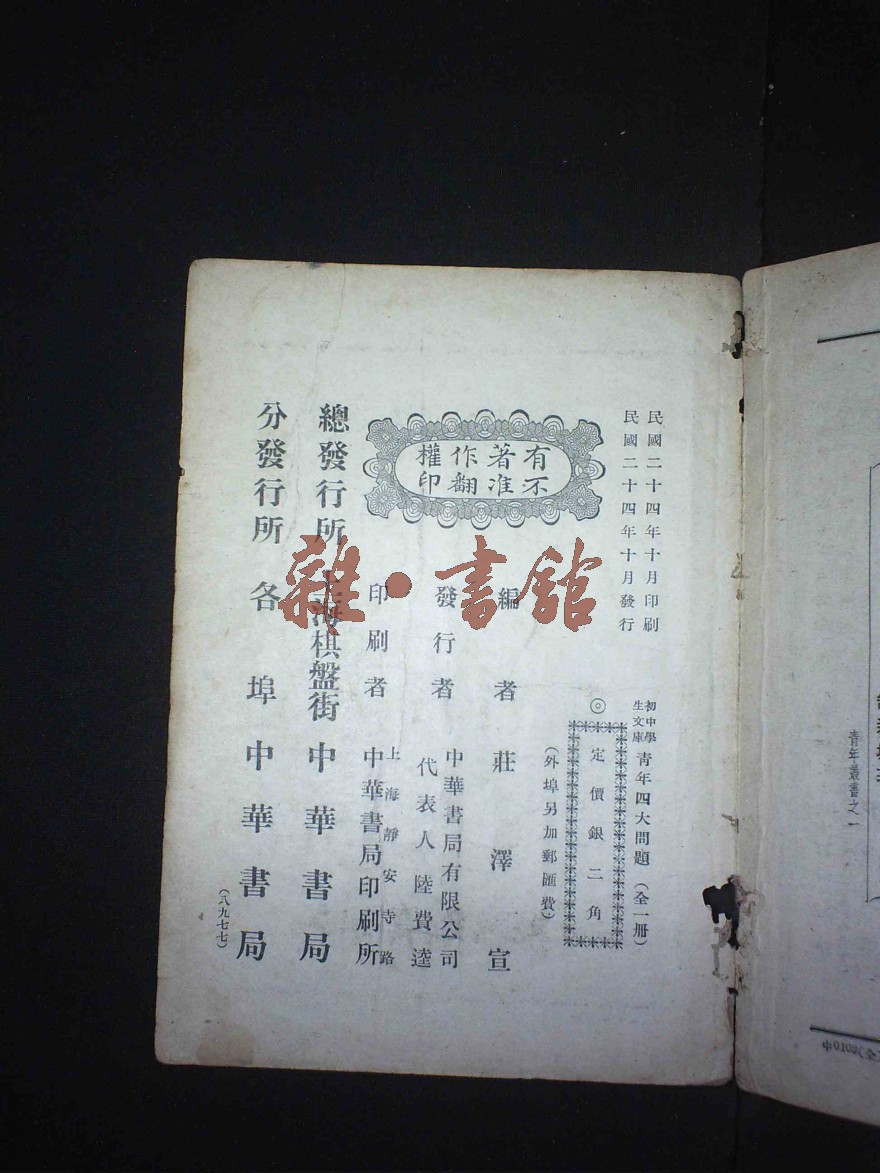 民國二十四年十月印刷
民國二十四年十月發行
初中學
生文庫
青年四大問題(全一冊)
◎
定價銀二角
(外埠另加郵匯費)
有著作權
不准翻印
編者 莊澤宣
發行者
中華書局有限公司
代表人陸費逵
印刷者
上海靜安寺路
中華書局印刷所
總發行所 上海棋盤街 中華書局
分發行所 各埠中華書局
(八九七七)
雜·書館
青年叢書之一